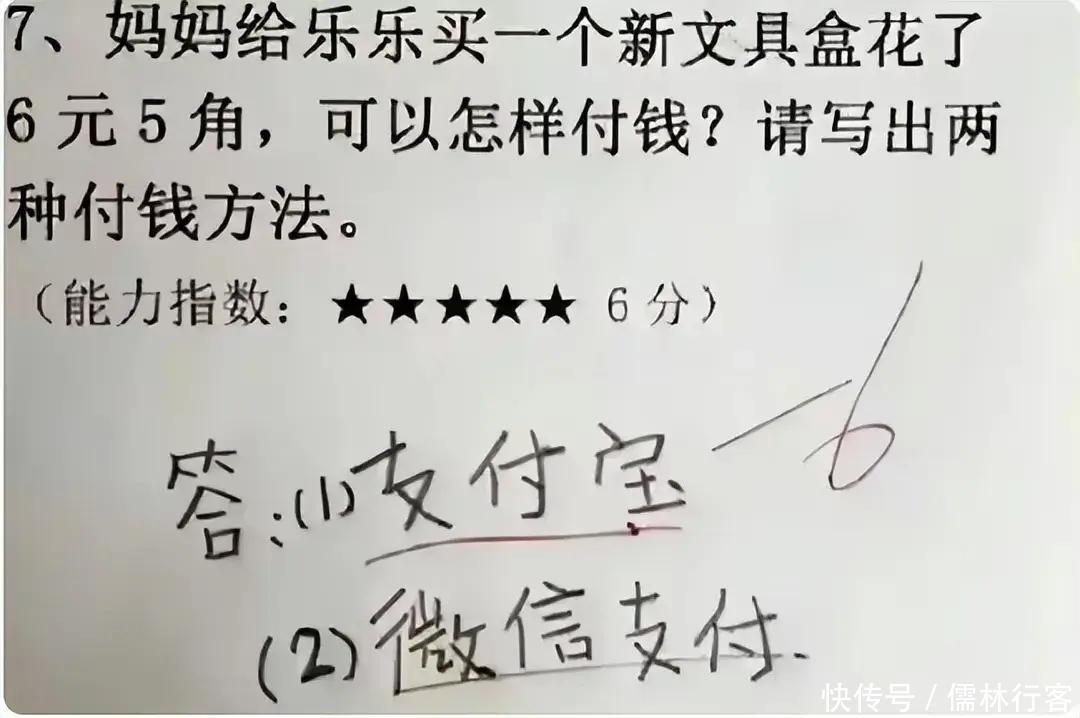 7、妈妈给乐乐买一个新文具盒花了
6元5角，可以怎样付钱？请写出两
种付钱方法。
（能力指数：★★★★★ 6分）
-6
答:(1)支付宝
(2)微信支付.
快传号 / 儒林行客